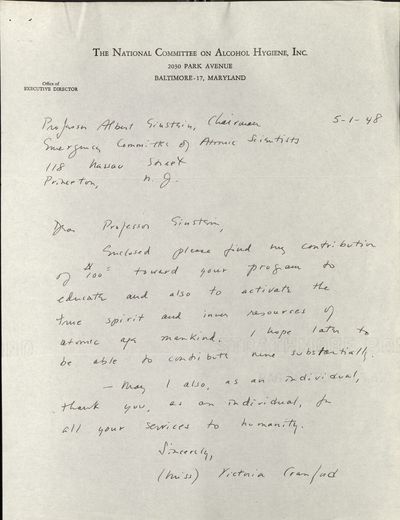 THE NATIONAL COMMITTEE ON ALCOHOL HYGIENE, INC.
2030 PARK AVENUE
BALTIMORE-17, MARYLAND
Office of
EXECUTIVE DIRECTOR
Professor Albert Einstein, Chairman 5-1-48
Emergency Committee of Atomic Scientists
118 Nassau Street
Princeton, N.J.
Dear Professor Einstein,
Enclosed please find my contribution
of $100 toward your program to
educate and also to activate the
true spirit and inner resources of
atomic age mankind. I hope later to
be able to contribute more substantially.
— May I also, as an individual,
thank you, as an individual, for
all your services to humanity.
Sincerely,
(Miss) Victoria